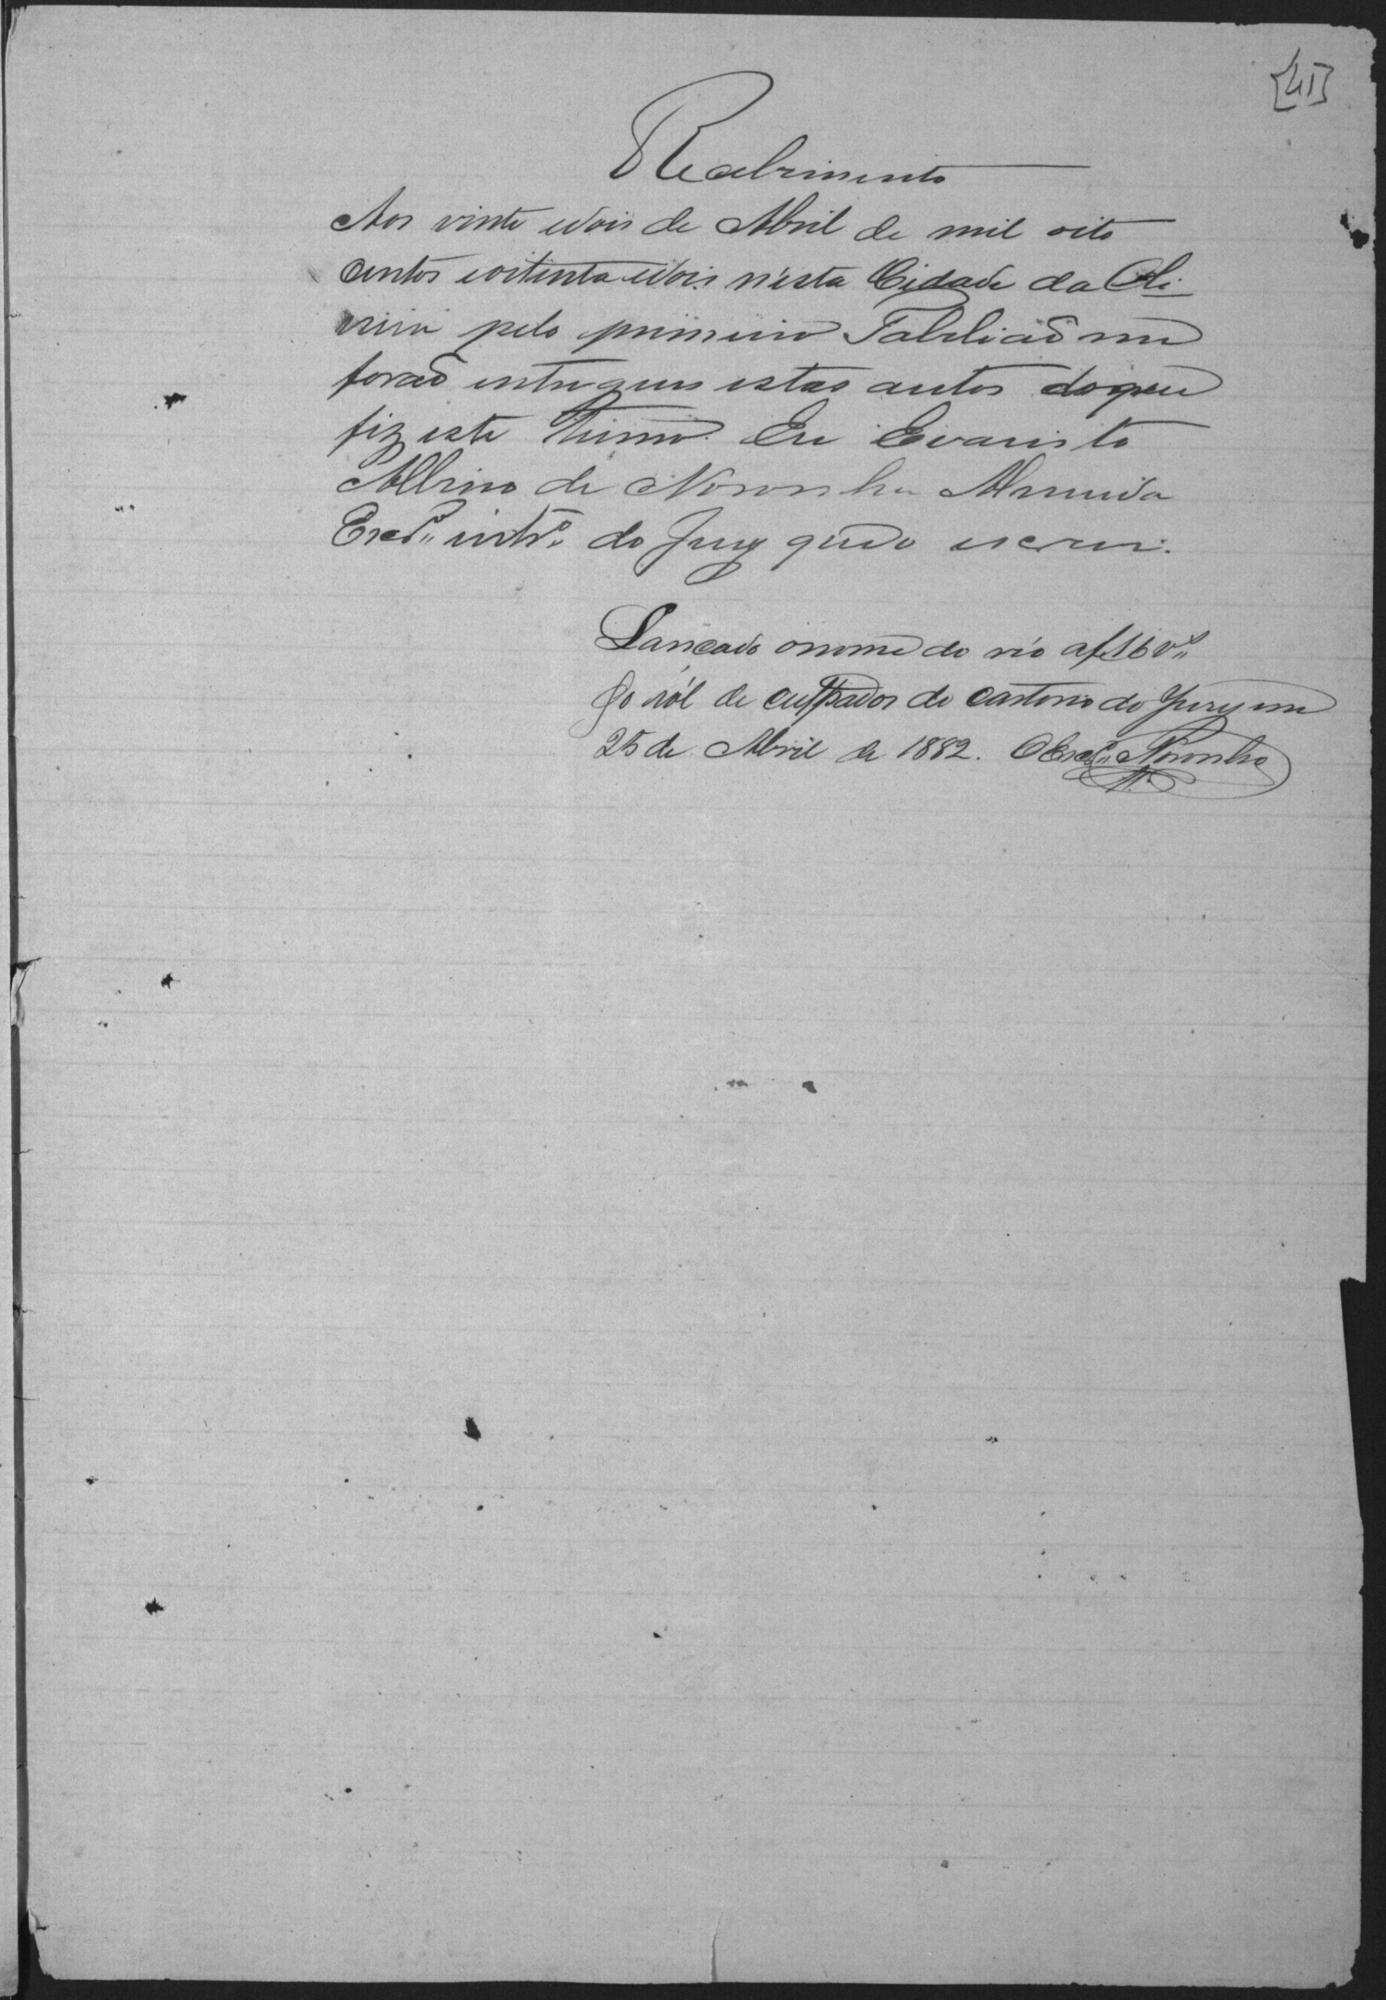 [41]
Recebimento
Aos vinte edois de Abril de mil oito
centos eoitenta edois n'esta Cidade da Oli-
veira pelo primeiro Tabelião me
forão entregues estes autos doque
fiz este termo. Eu Evaristo
Albino de Noronha Almeida
Escr.m intr.o do Jury queo escrevi.
Lançado onome do réo af 16 v.o
do ról de culpados do cartorio do Jury em
25 de Abril de 1882. OEscr.m Noronha